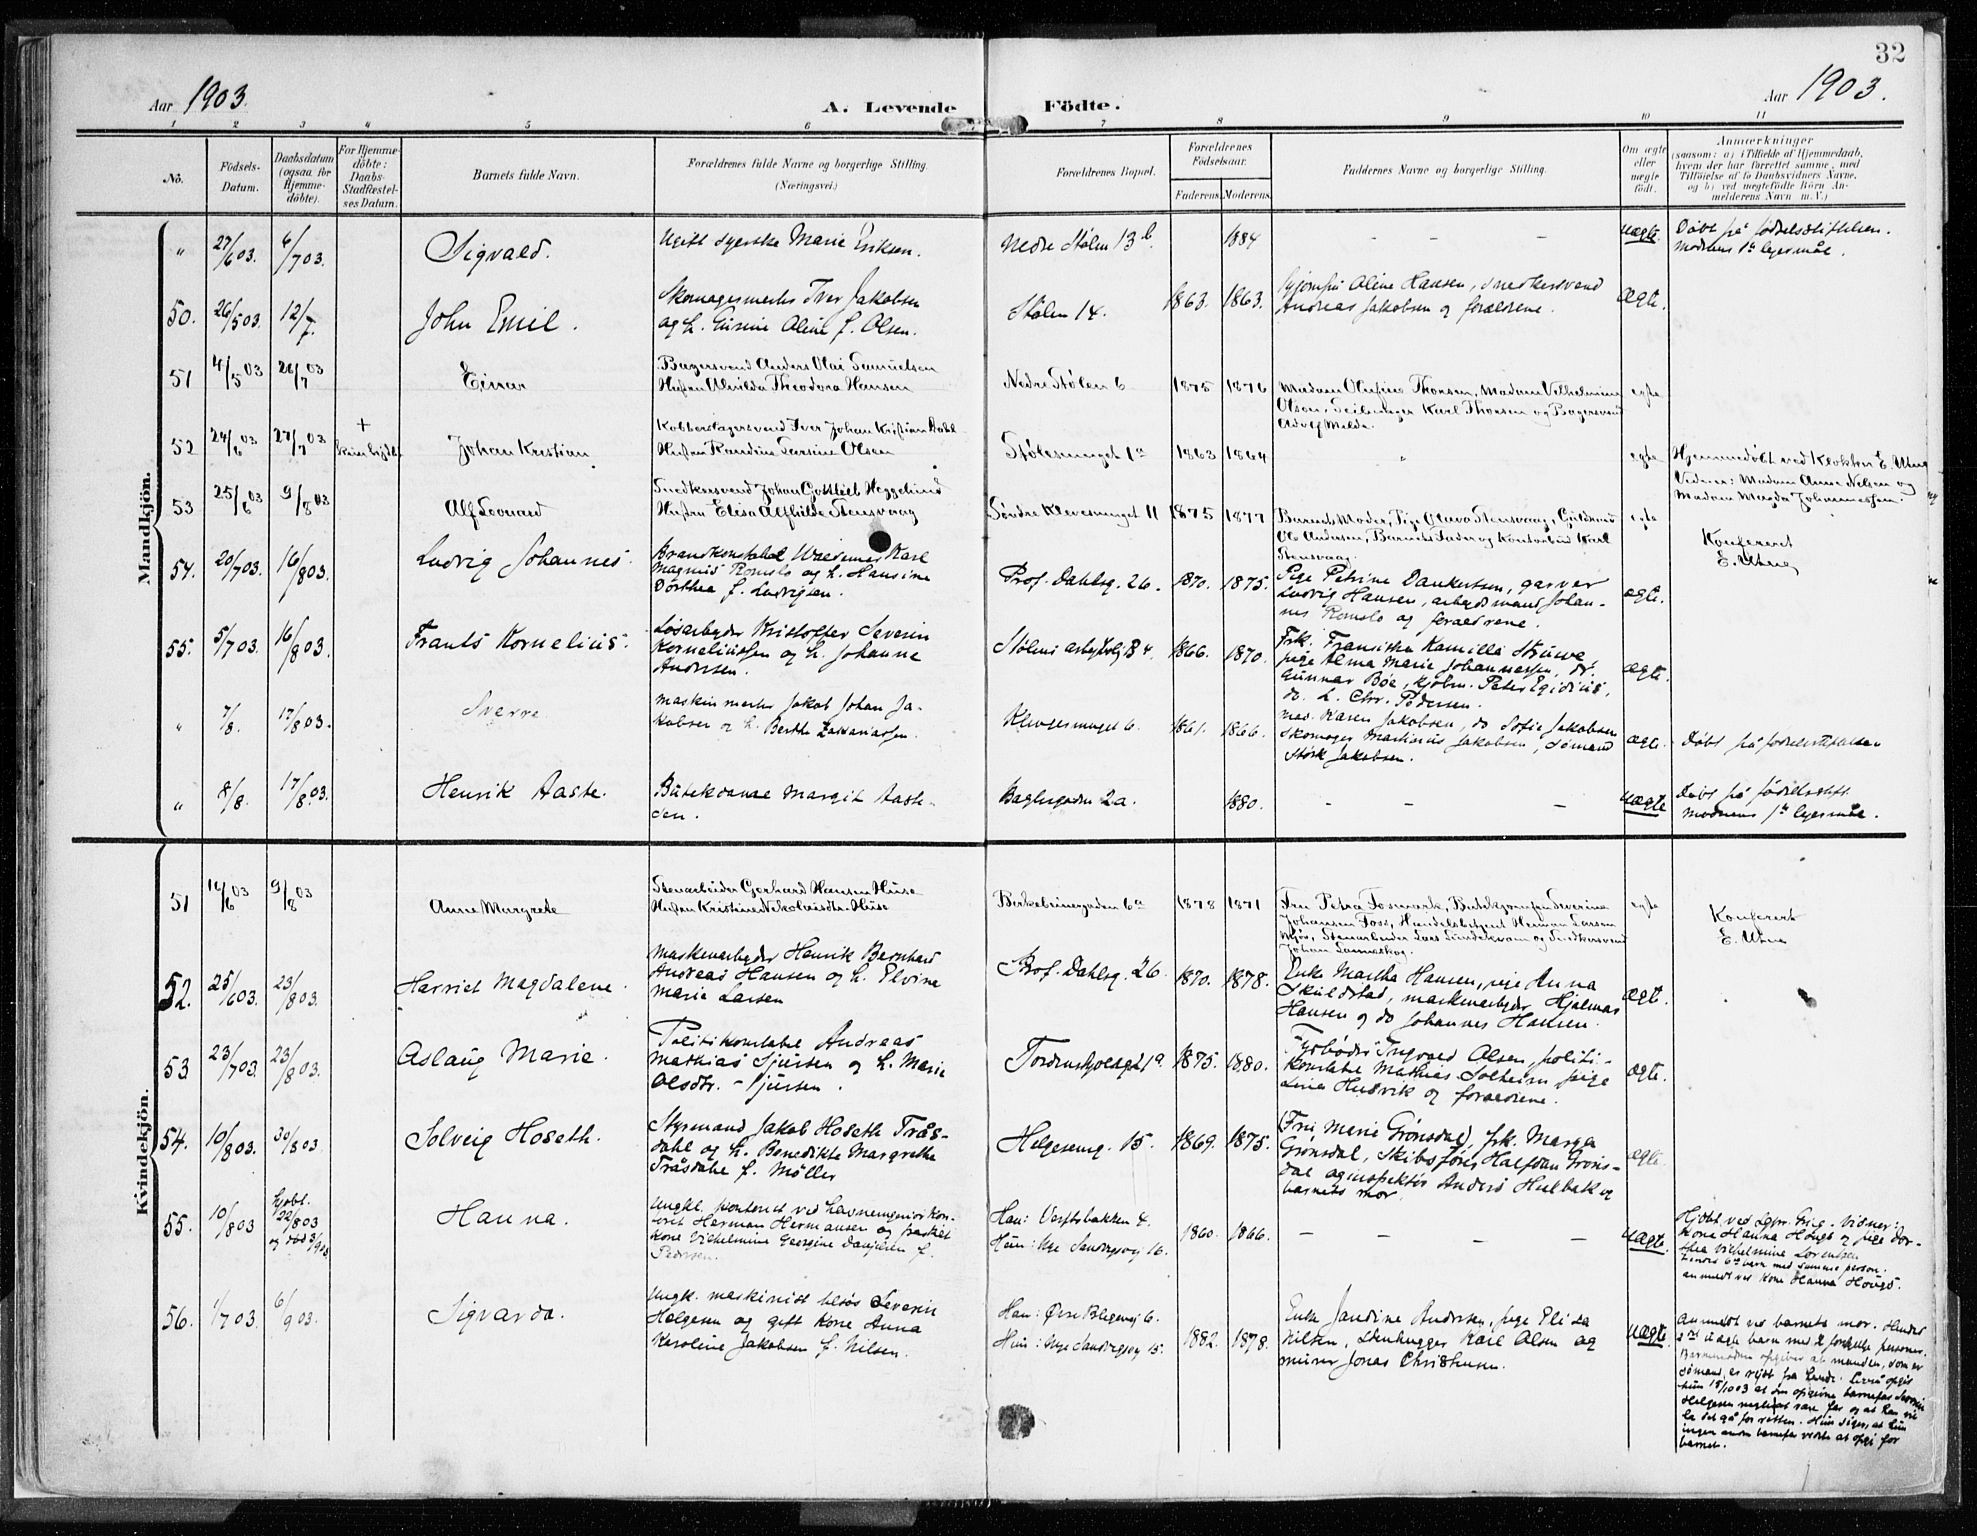 32
Aar 1903.
A. Levende Födte.
Aar 1903.
1 2 3 4 5 6 7 8 9 10 11
No.
Födsels-
Datum.
Daabsdatum
(ogsaa for
Hjemme-
döbte).
For Hjemme-
döbte:
Daabs-
Stadfæstel-
ses Datum.
Barnets fulde Navn.
Forældrenes fulde Navne og borgerlige Stilling.
(Næringsvei.)
Forældrenes Bopæl.
Forældrenes
Födselsaar.
Faderens. Moderens.
Faddernes Navne og borgerlige Stilling.
Om ægte
eller
uægte
födt.
Anmærkninger
(saasom: a) i Tilfælde af Hjemmedaab,
hvem der har forrettet samme, med
Tilföielse af to Daabsvidners Navne,
og b) ved uægtefödte Börn An-
melderens Navn m. V.)
Mandkjön.
" 27/6 03. 6/7 03. Sigvald.
Ugift syerske Marie Eriksen.
Nedre Stølen 13 b. 1884 – – – uægte.
Døbt på fødselsstiftelsen.
Moderens 1ste lejersmål.
50. 26/5 03. 12/7. John Emil.
Skomagermester Iver Jakobsen
og h. Gurine Aline f. Olsen.
Stølen 14. 1863. 1863.
Aline Hansen, snedkersvend
Andreas Jakobsen og forældrene.
ægte.
51 4/5 03 26/7 03 Einar
Bagersvend Anders Olai Samuelsen
Hustru Alvilda Theodora Hansen
Nedre Stølen 6 1875 1876
Madam Olufine Thorsen, Madam Vilhelmine
Olsen, Seilmager Karl Thorsen og Bagersvend
Adolf Melde.
egte
52 24/6 03 27/7 03 + Johan Kristian
Kobberslagersvend Iver Johan Kristian Dahl
Hustru Randine Larsine Olsen
Stølesmuget 1a 1863 1864 " egte
Hjemmedøbt ved Klokker E. Utne
Vidner: Madam Anne Nelsen og
Madam Magda Johannessen.
53 25/6 03 9/8 03 Alf Leonard
Snedkersvend Johan Gottlieb Heggelund
Hustru Elisa Alfhilde Stensvaag
Søndre Klevesmuget 11 1875 1877
Barnets Moder, Pige Olava Stensvaag, Guldsmed
Ole Andersen, Barnets Fader og Kontorbud Karl
Stensvaag.
egte
Konfereret
E. Utne
54. 20/7 03. 16/8 03. Ludvig Johannes.
Brandkonstabel Valdemar Karl
Magnus Romslo og h. Hansine
Dorthea f. Ludvigsen.
Prof. Dahlsg. 26. 1870. 1875.
Pige Petrine Dankertsen, garver
Ludvig Hansen, arbejdsmand Johan-
nes Romslo og forældrene.
ægte.
55. 5/7 03. 16/8 03. Frants Kornelius.
Løsarbejder Kristoffer Severin
Korneliussen og h. Johanne
Andersen.
Stølens arbejdbolig B 4. 1866. 1870.
Frk. Fransiska Kamilla Struwe,
pige Alma Marie Johannessen, dr.
Gunnar Böe, kjøbm. Peter Egidius,
do. L. Chr. Pedersen.
ægte.
" 7/8. 17/8 03. Sverre
Maskinmester Jakob Johan Ja-
kobsen og h. Berthe Zakariassen.
Klevesmuget 6. 1861. 1866.
Mad. Karen Jakobsen, do Sofie Jakobsen
Skomager Martinus Jakobsen, sømand
Størk Jakobsen.
ægte.
Døbt på fødselsstiftelsen
" 8/8. 17/8 03. Henrik Aaste.
Butikdame Margit Aaste-
den.
Baglergaden 2a. 1880. – – – uægte
Døbt på fødselsstift.
Moderens 1ste lejersmål.
Kvindekjön.
51 14/6 03 9/8 03 Anne Margrete
Stenarbeider Gerhard Hansen Huse
Hustru Kristine Nikolaisdtr. Huse
Birkebeinergaden 6a 1878 1871
Fru Petra Fosmark, Butikjomfru Severine
Johansen Foss, Handelsbetjent Herman Larsen
Stenarbeider Lars Sundekvam og Snedkersvend
Johan
egte
Konfereret
E. Utne
52. 25/6 03. 23/8 03. Harriet Magdalene.
Maskinarbejder Henrik Bernhard
Andreas Hansen og h. Elvine
Marie Larsen
Prof. Dahlsg. 26. 1870. 1878.
Enke Martha Hansen, pige Anna
Skuldstad, maskinarbejder Hjalmar
Hansen og do Johannes Hansen.
ægte.
53 23/7 03. 23/8 03. Aslaug Marie.
Politikonstabel Andreas
Mathias Sjursen og h. Marie
Olsdtr. Sjursen.
Tordenskjoldsgt 1a 1875. 1880.
Fyrbøder Ingvald Olsen, politi-
konstabel Mathias Solheim, pige
Lina Husvik og forældrene.
ægte.
54. 10/8 03. 30/8 03. Solveig Hoseth.
Styrmand Jakob Hoseth Trås-
dahl og h. Benedikte Margrethe
Tråsdahl f. Møller
Helgesensg. 15. 1869. 1875.
(Fru Marie Grønsdal), frk. Marga
Grønsdal, Skibsfører Halfdan Grøns-
dal og inspektør Anders Hulbak og
barnets mor.
ægte.
55. 10/8 03 hjdbt. 22/8 03 og død 3/9 03 Hanna.
Ungk. portører ved havneingeniørkon-
toret Herman Hermansen og fraskilt
kone Vilhelmine Georgine Danielsen f.
Pedersen.
Han: Verftsbakken 4.
Hun: Nye Sandvigsvej 16.
1860. 1866. – – – – uægte.
Hjdbt. ved sgpr. Grieg. Vidner:
Kone Hanna Hougs og pige Dor-
thea Vilhelmine Lorentzen.
Hendes 6te barn med samme person.
anmeldt ved kone Hanna Hougs.
56. 1/7 03. 6/9 03. Sigvarda.
Ungk. maskinist Severin
Helgesen og gift kone Anna
Karoline Jakobsen f. Nilsen.
Han: Øvre Blegevej 6.
Hun: Nye Sandvigsvej 15.
1882. 1878.
Enke Jandine Andersen, pige Elisa
Nilsen, stenhugger Karl Olsen og
murer Jonas Christensen.
uægte.
Anmeldt ved barnets mor. Hendes
2det uægte barn med 2 forskjellige personer.
Barnemoderen opgiver at manden, som er
sømand, er rejst fra hende. Senere opgir
hun 15/10 03 at den opgivne barnefar Severin
Helgesen negter at være far og at han vil
la det gå for retten. Hun siger, at hun
ingen anden barnefar vidste at opgi for
barnet.